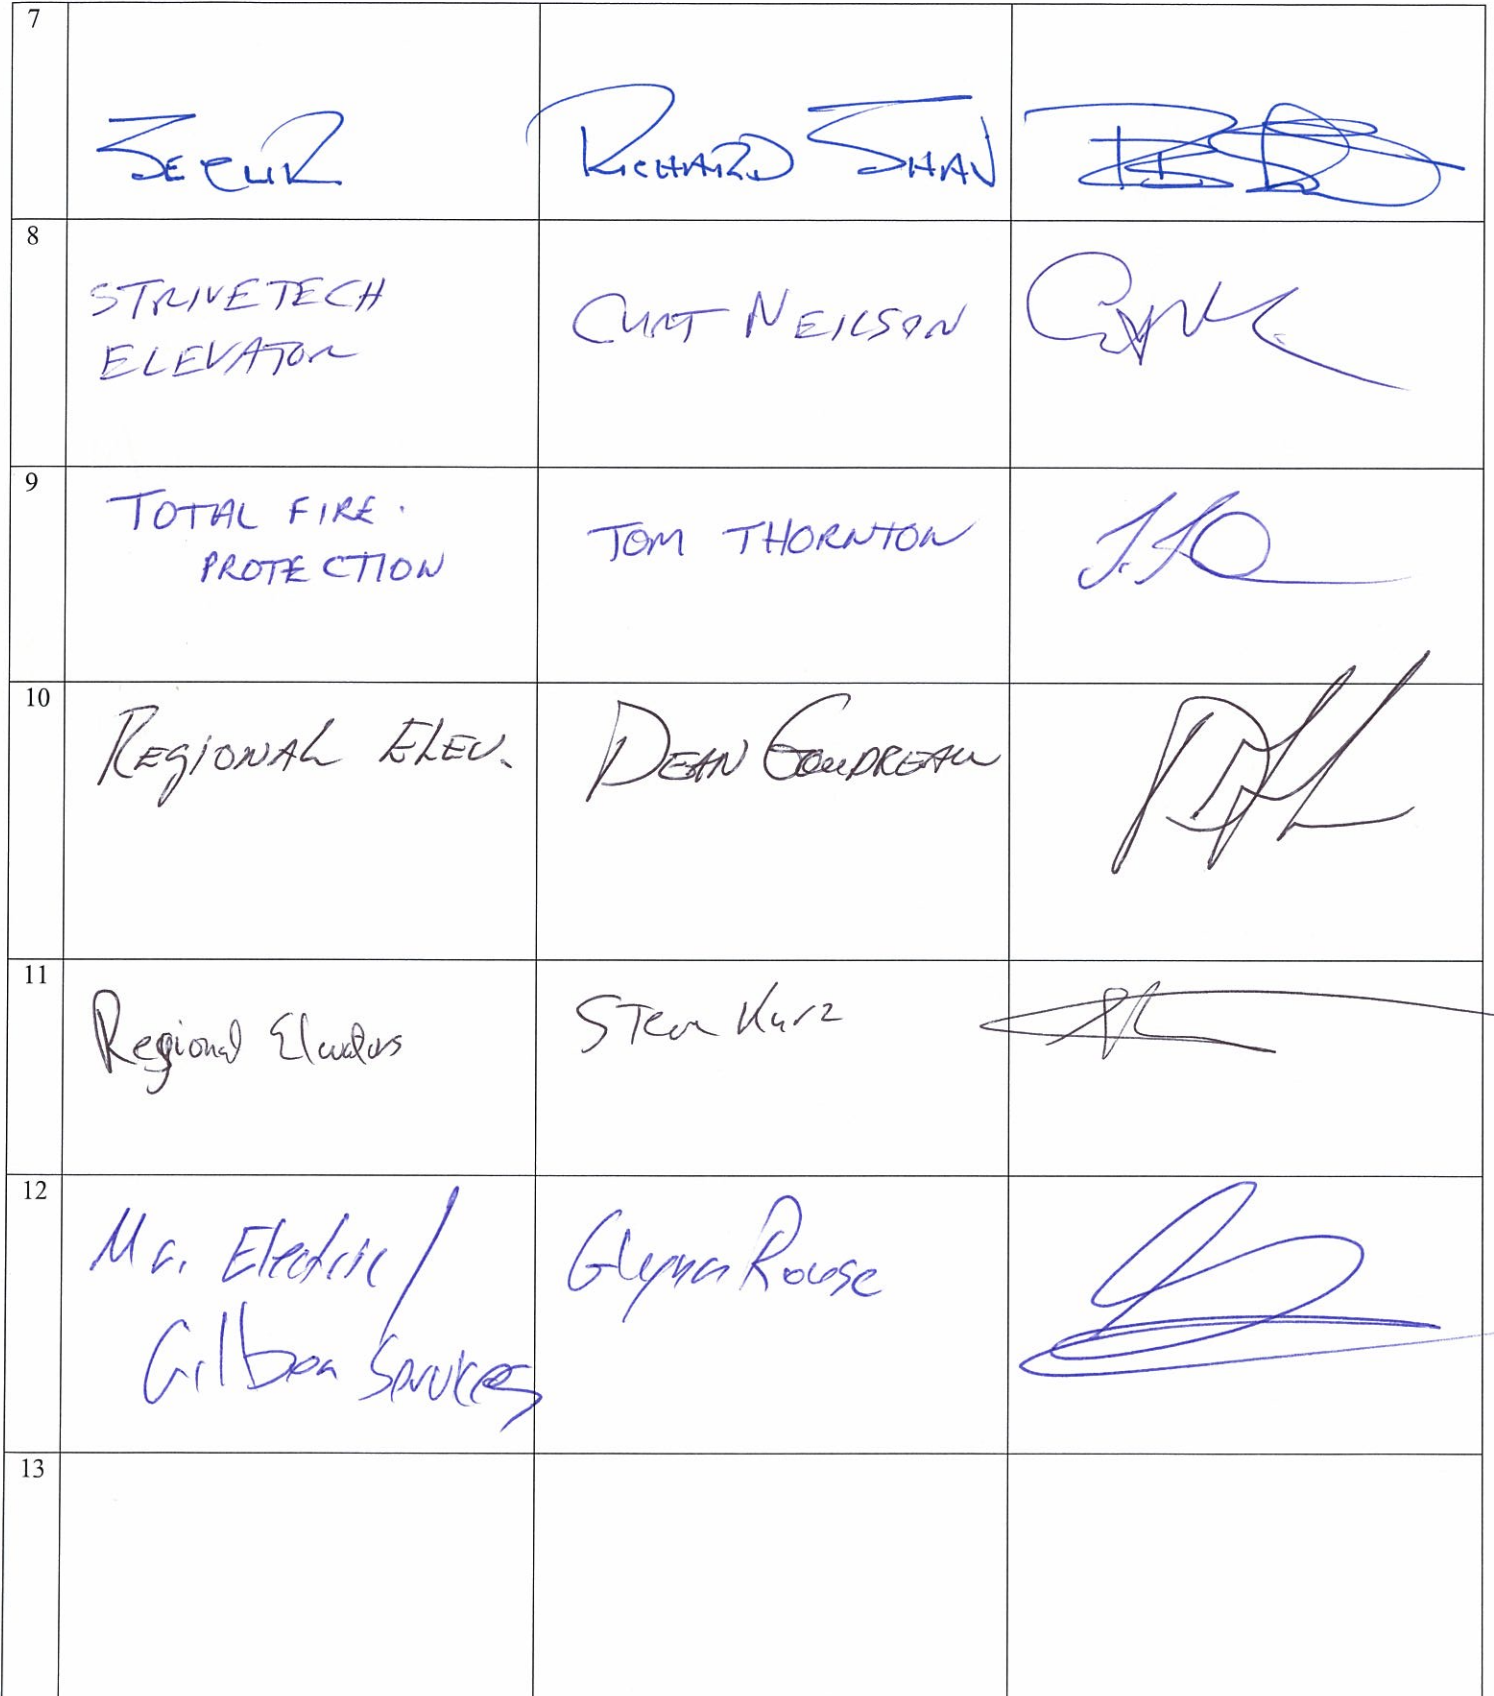 7
SECUR
RICHARD SHAN
8
STRIVETECH
ELEVATOR
CURT NEILSON
9
TOTAL FIRE.
PROTECTION
TOM THORNTON
10
REGIONAL ELEV.
DEAN GOUDREAU
11
Regional Elevators
Steve Kurz
12
Mr. Electric/
Services
Rouse
13